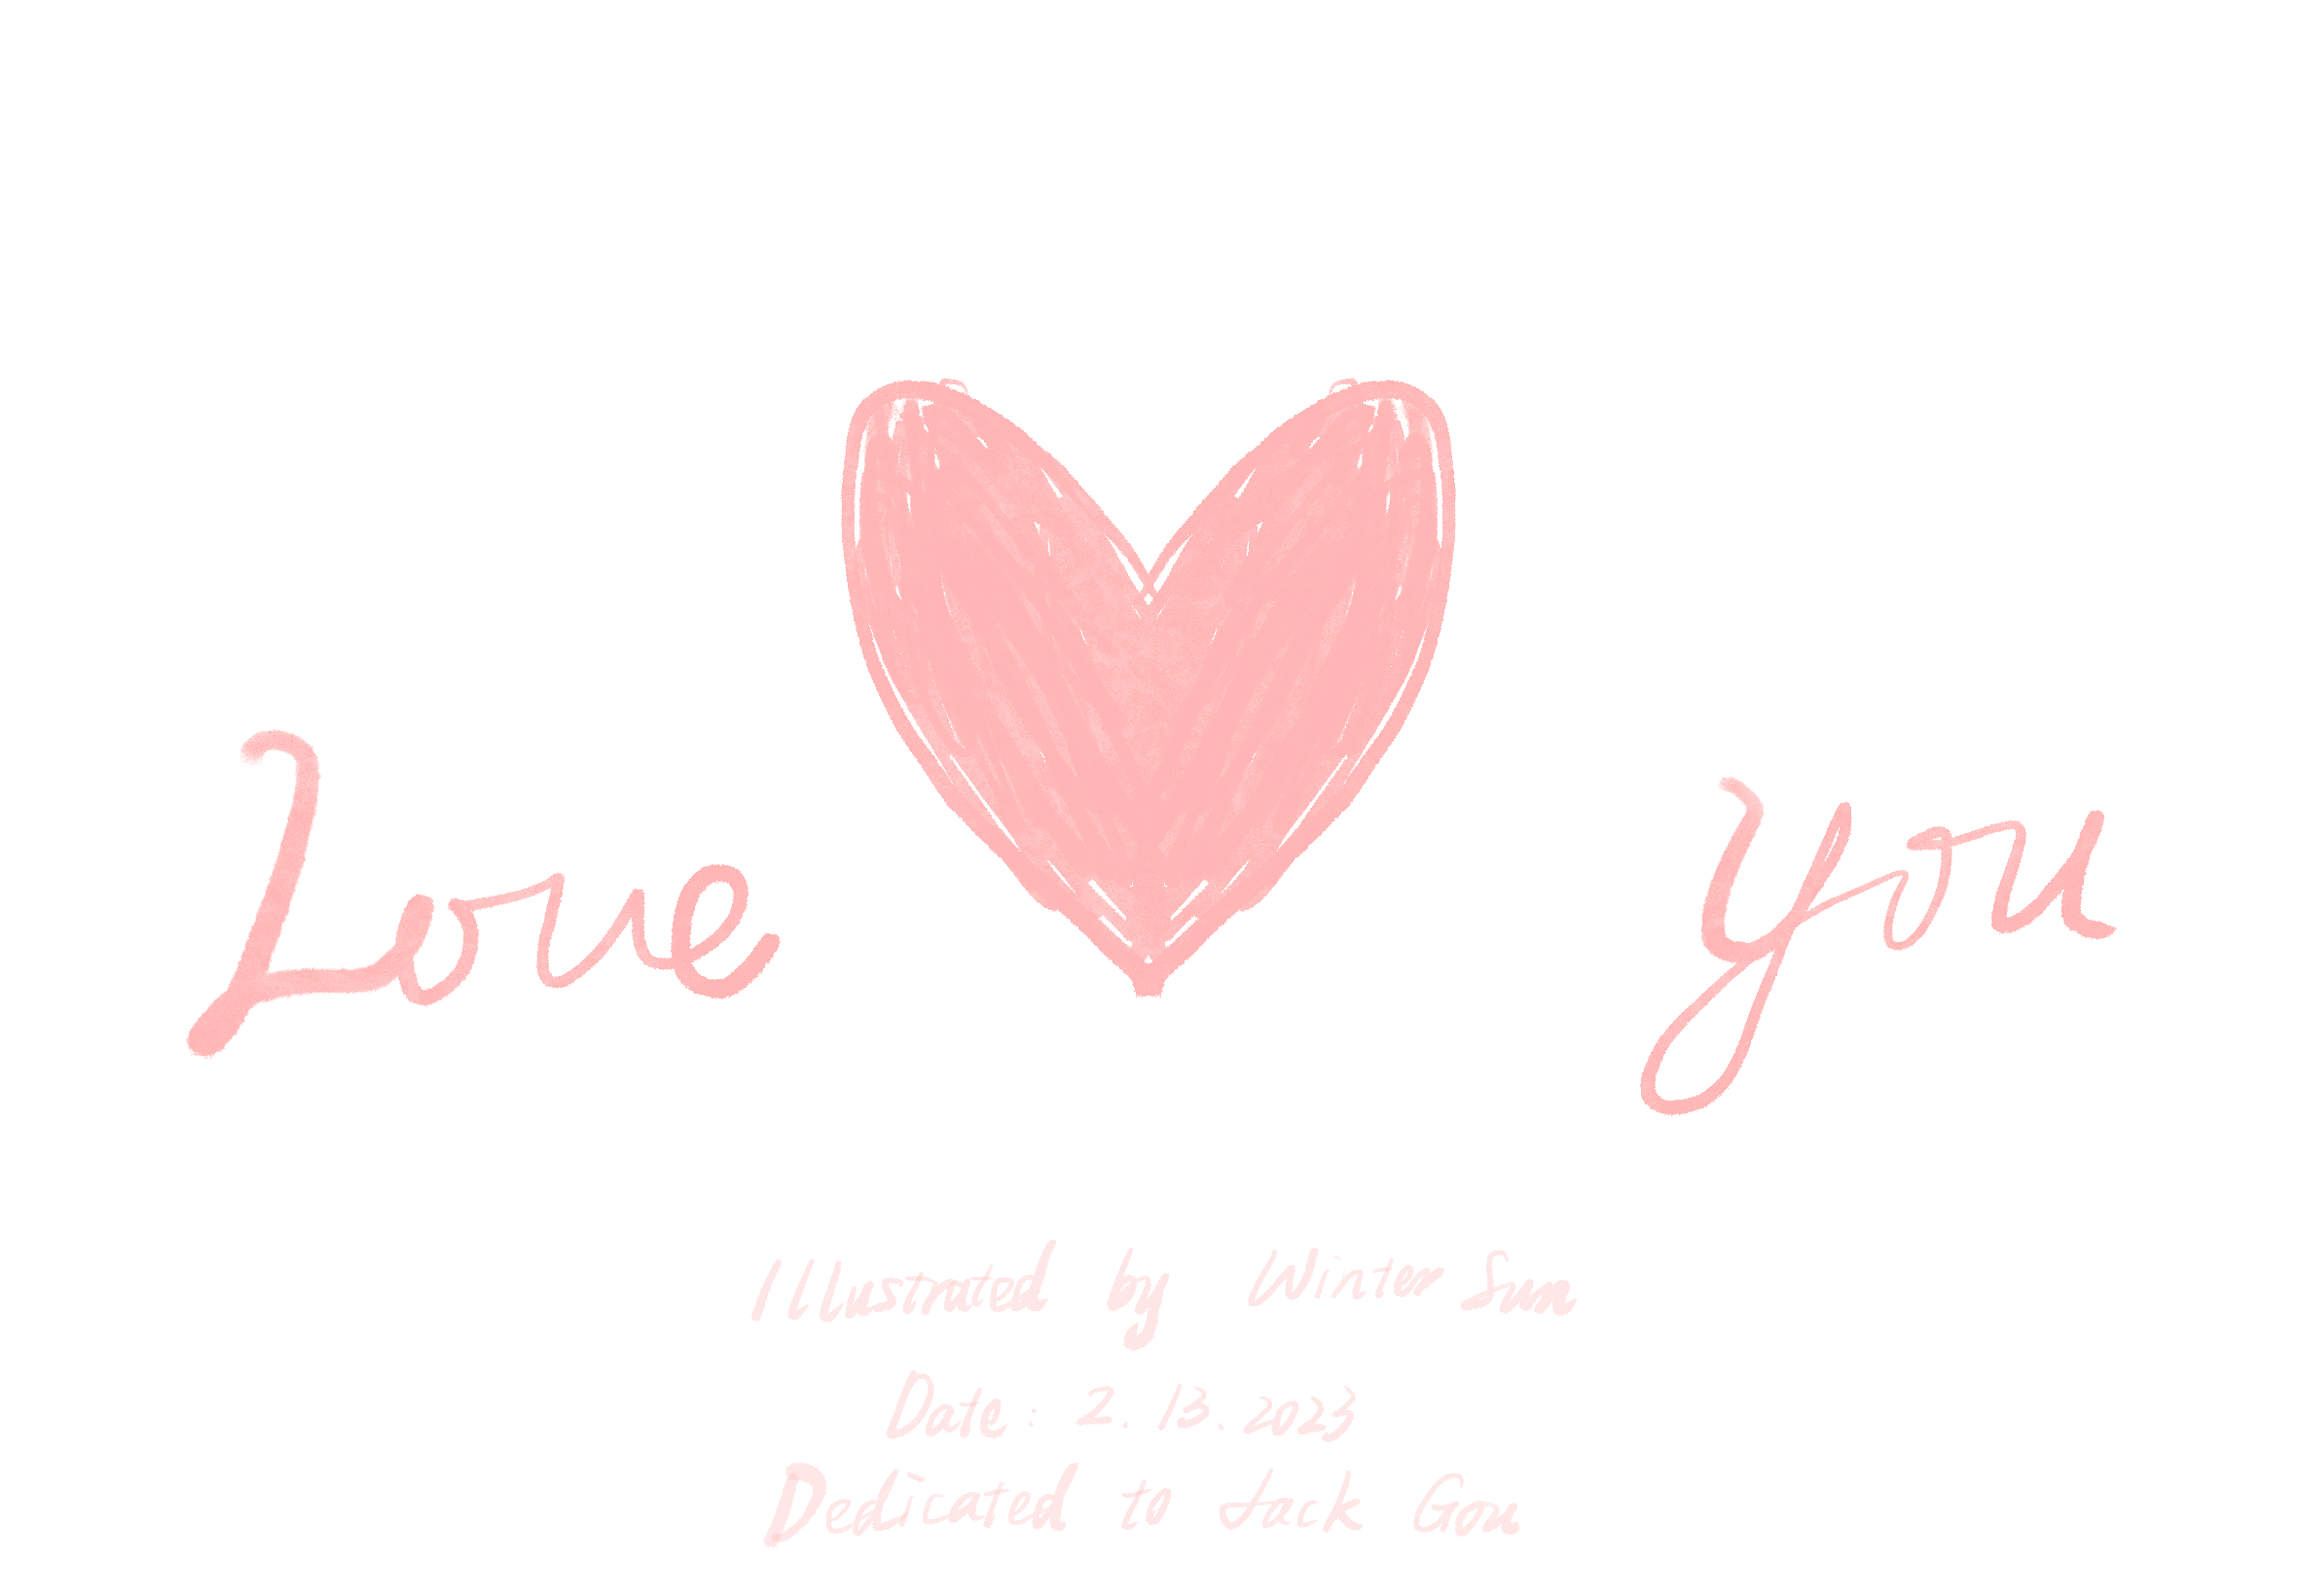 Love You
Illustrated by Winter Sun
Date: 2.13.2023
Dedicated to Jack Gou